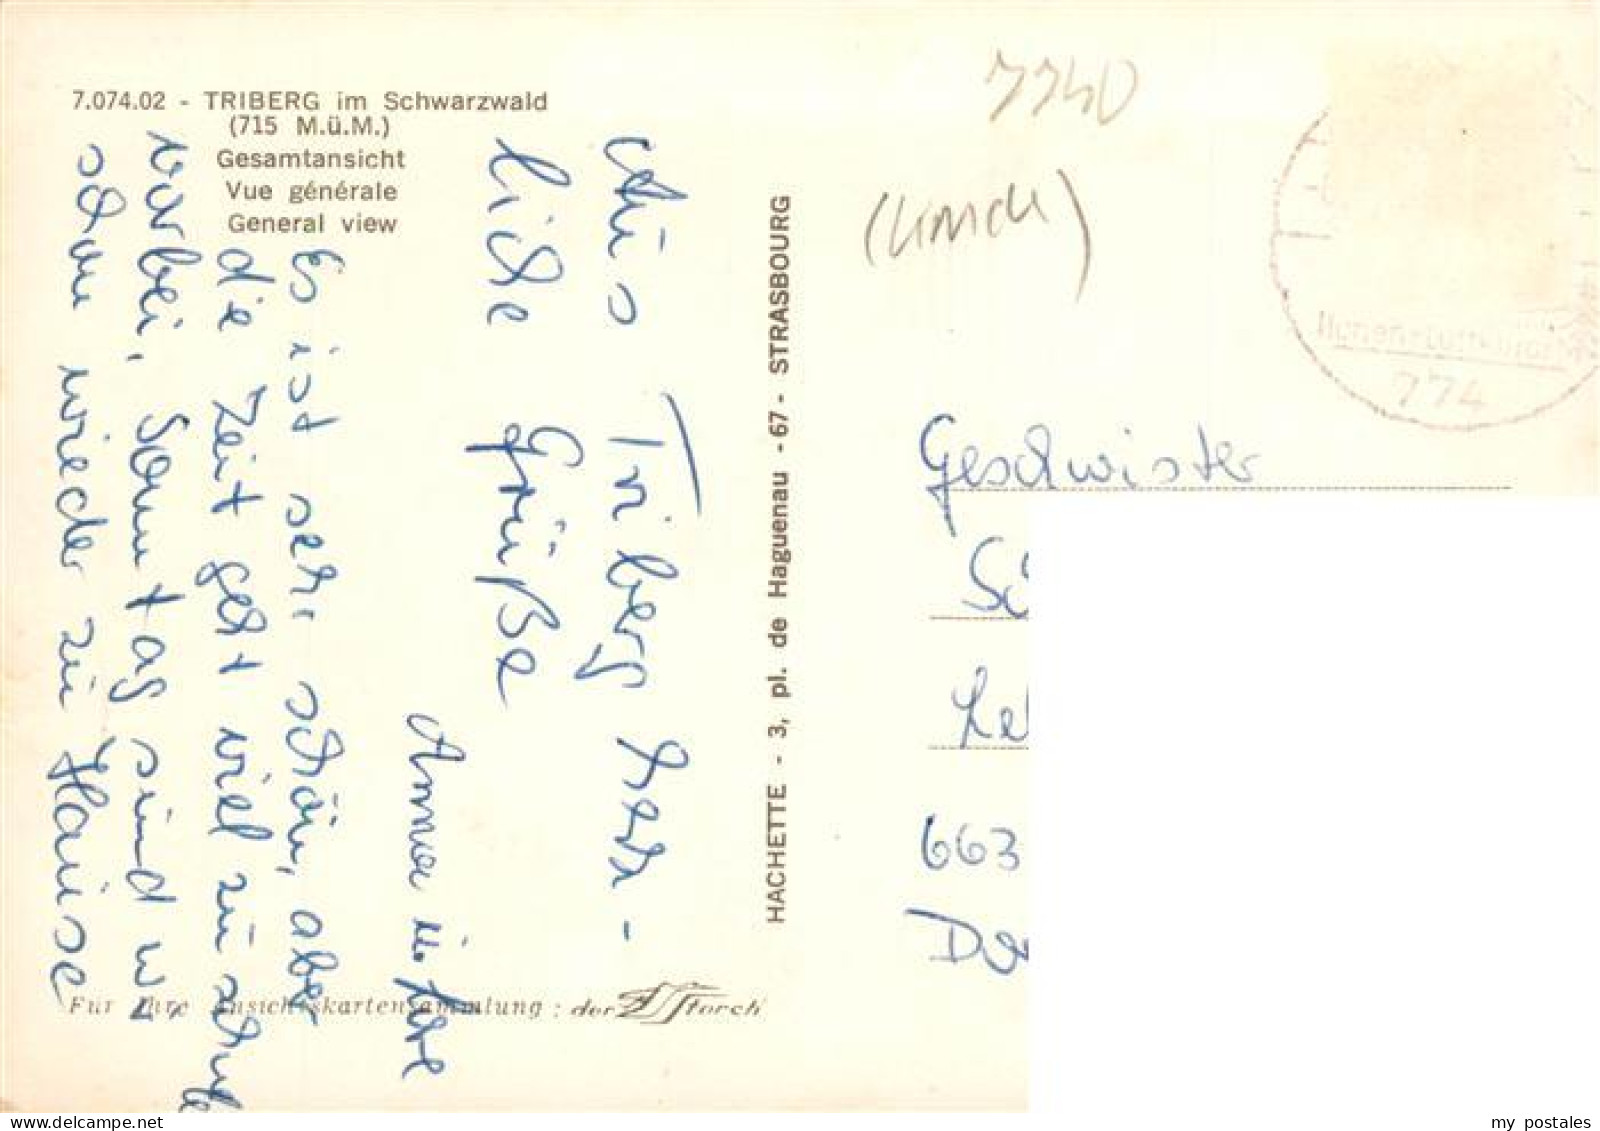 7.074.02 - TRIBERG im Schwarzwald
(715 M.ü.M.)
Gesamtansicht
Vue générale
General view
Aus Triberg herz-
liche Grüße
Anne u.
Es ist sehr schön, aber
die Zeit geht viel zu schnell
vorbei, Sonntag sind wir
schon wieder zu Hause
Für Ihre Ansichtskartensammlung : der Storch
HACHETTE - 3, pl. de Haguenau - 67 - STRASBOURG
7740
774
Geschwister
663
my postales